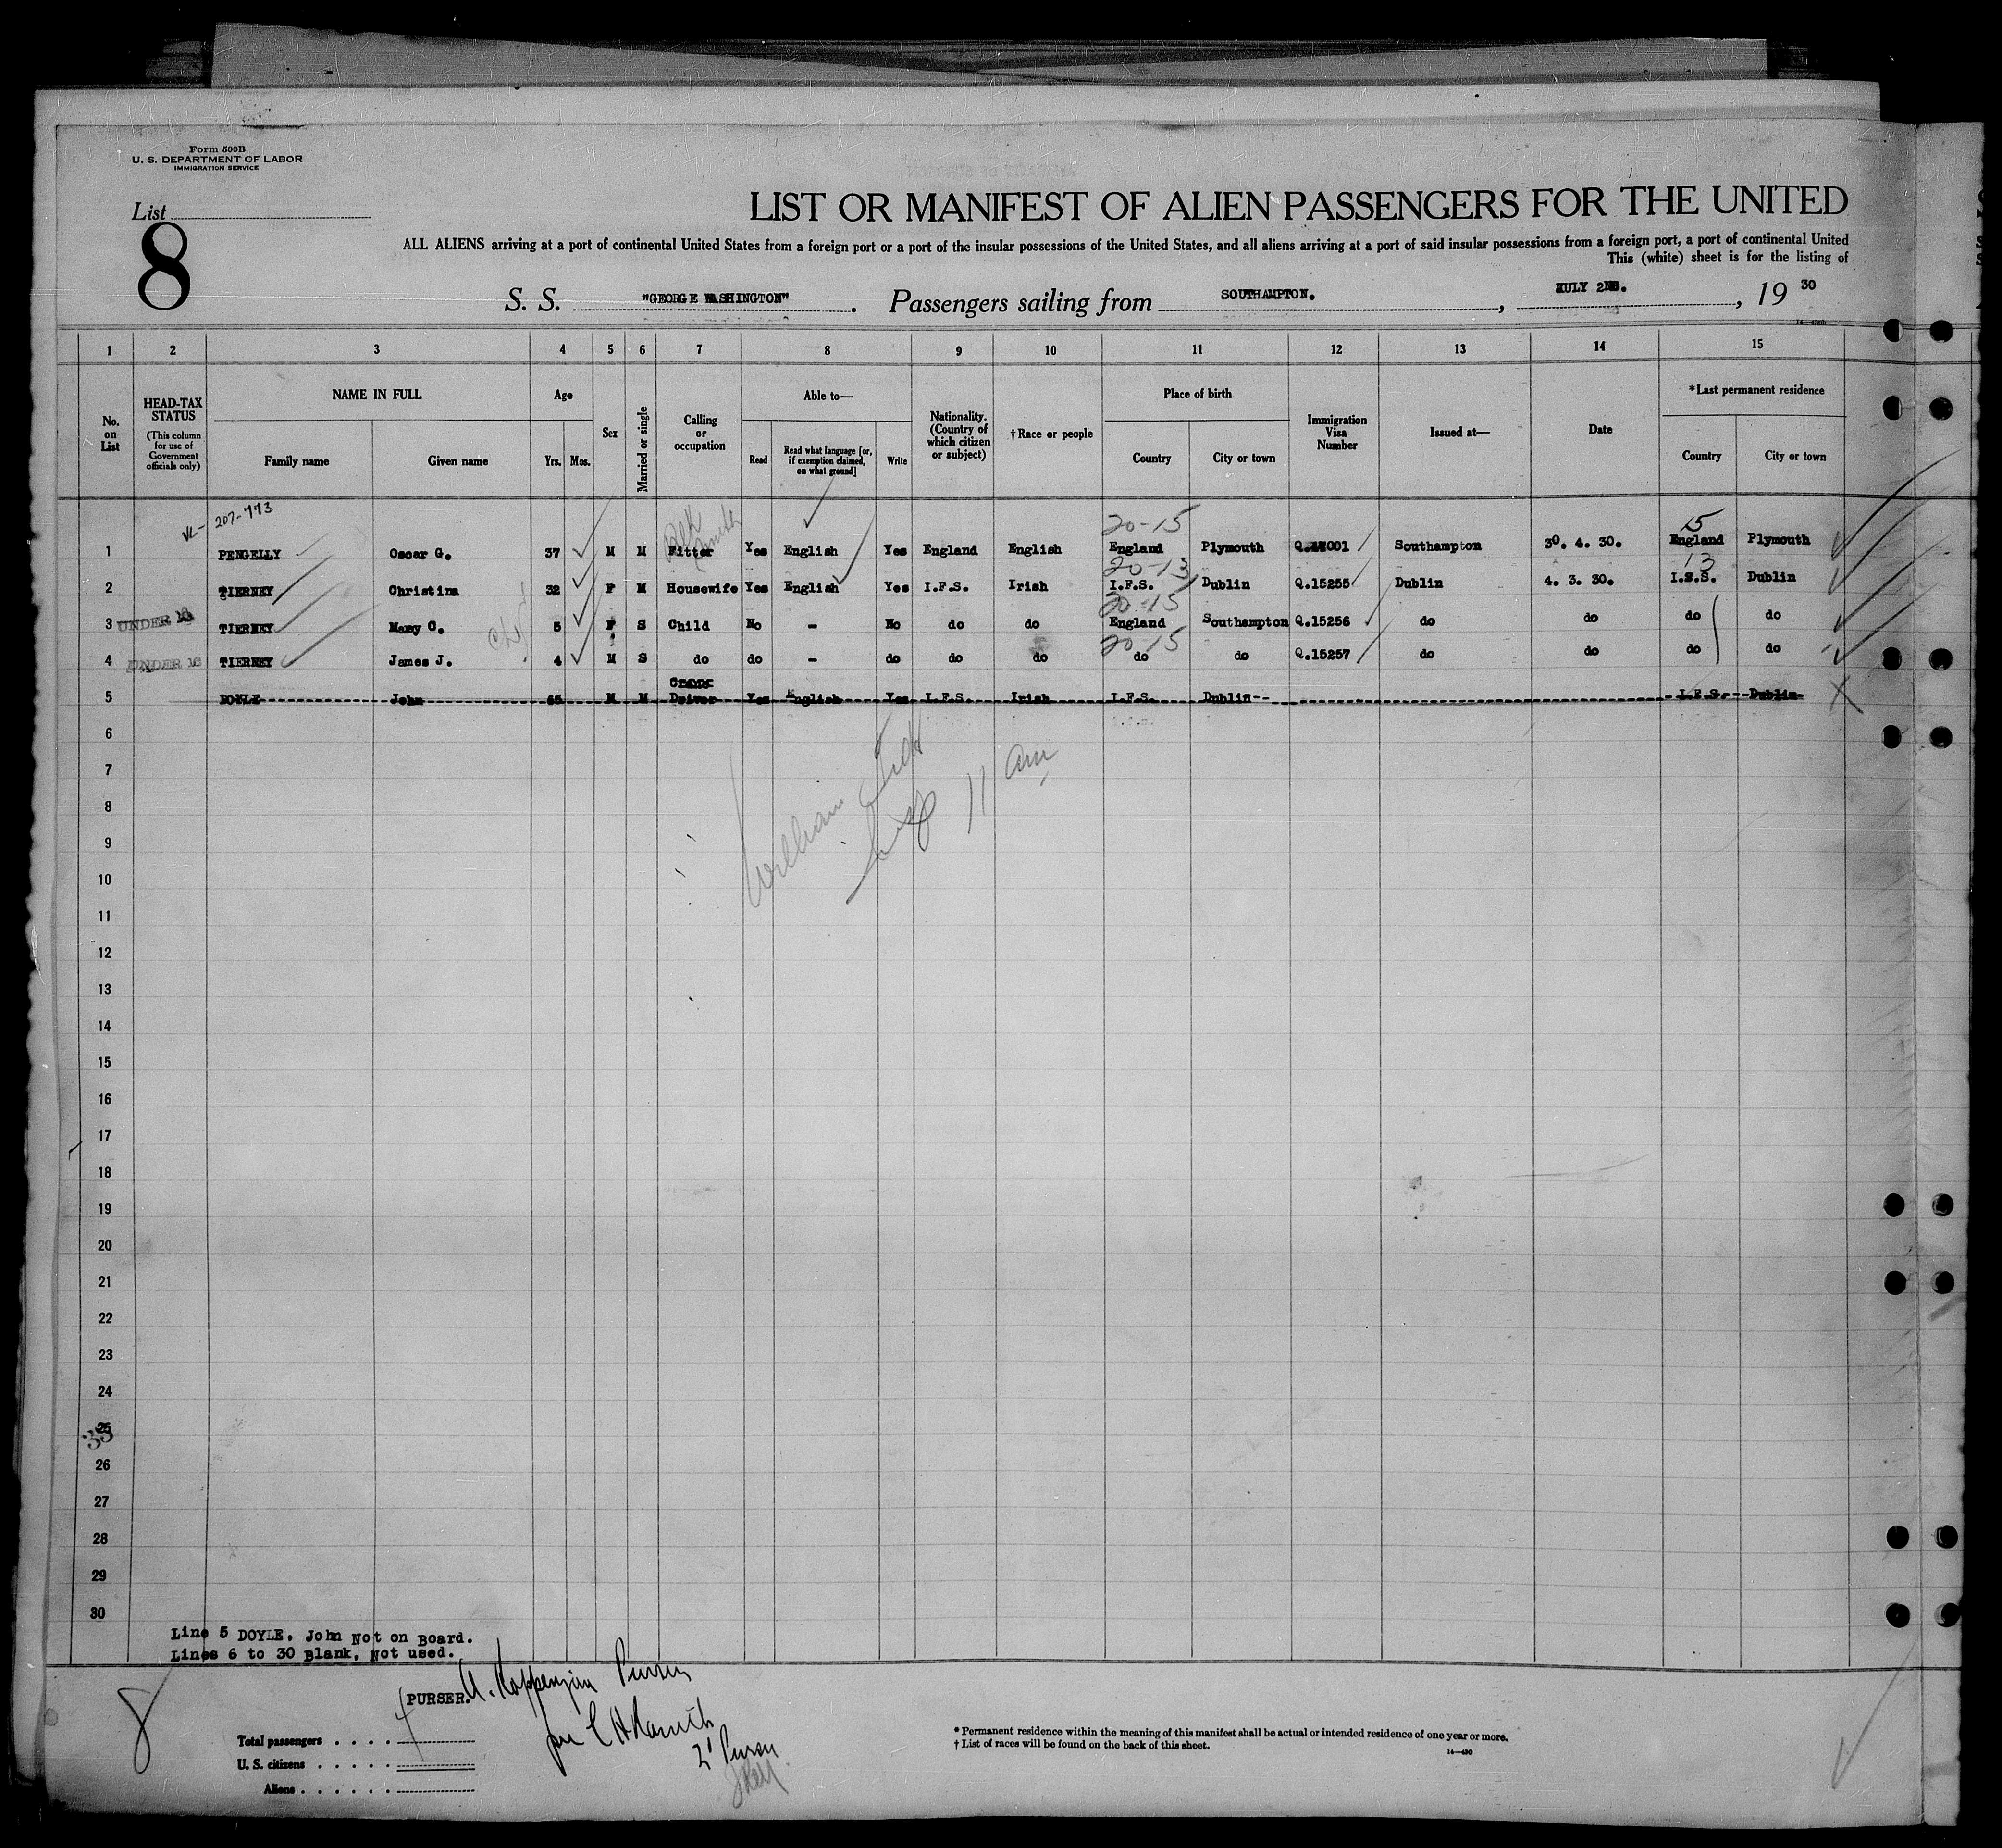 Form 500B
U. S. DEPARTMENT OF LABOR
IMMIGRATION SERVICE
List
8
LIST OR MANIFEST OF ALIEN PASSENGERS FOR THE UNITED
ALL ALIENS arriving at a port of continental United States from a foreign port or a port of the insular possessions of the United States, and all aliens arriving at a port of said insular possessions from a foreign port, a port of continental United
This (white) sheet is for the listing of
S. S. "GEORGE WASHINGTON". Passengers sailing from SOUTHAMPTON. , JULY 2ND. , 19 30
1 2 3 4 5 6 7 8 9 10 11 12 13 14 15
No. on List
HEAD-TAX STATUS (This column for use of Government officials only)
NAME IN FULL
Family name
Given name
Age
Yrs. Mos.
Sex
Married or single
Calling or occupation
Able to—
Read
Read what language [or, if exemption claimed, on what ground]
Write
Nationality. (Country of which citizen or subject)
†Race or people
Place of birth
Country
City or town
Immigration Visa Number
Issued at—
Date
*Last permanent residence
Country
City or town
207-773
20-15 15
1 PENGELLY Oscar G. 37 M M Fitter Yes English Yes England English England Plymouth Southampton 30. 4. 30. England Plymouth
20-13 13
2 TIERNEY Christina 32 F M Housewife Yes English Yes I.F.S. Irish I.F.S. Dublin Q.15255 Dublin 4. 3. 30. I.F.S. Dublin
20-15
3 UNDER 16 TIERNEY Mary C. 5 F S Child No - No do do England Southampton Q.15256 do do do do
20-15
4 UNDER 16 TIERNEY James J. 4 M S do do - do do do do do Q.15257 do do do do
5 DOYLE John 65 M M Crane Driver Yes English Yes I.F.S. Irish I.F.S. Dublin I.F.S. Dublin X
6
William
7 11 am
8
9
10
11
12
13
14
15
16
17
18
19
20
21
22
23
24
25
26
27
28
29
30
Line 5 DOYLE, John Not on Board.
Lines 6 to 30 Blank, Not used.
8
PURSER. Purser
Total passengers
2' Purser
U. S. citizens
Aliens
* Permanent residence within the meaning of this manifest shall be actual or intended residence of one year or more.
† List of races will be found on the back of this sheet.
14—430